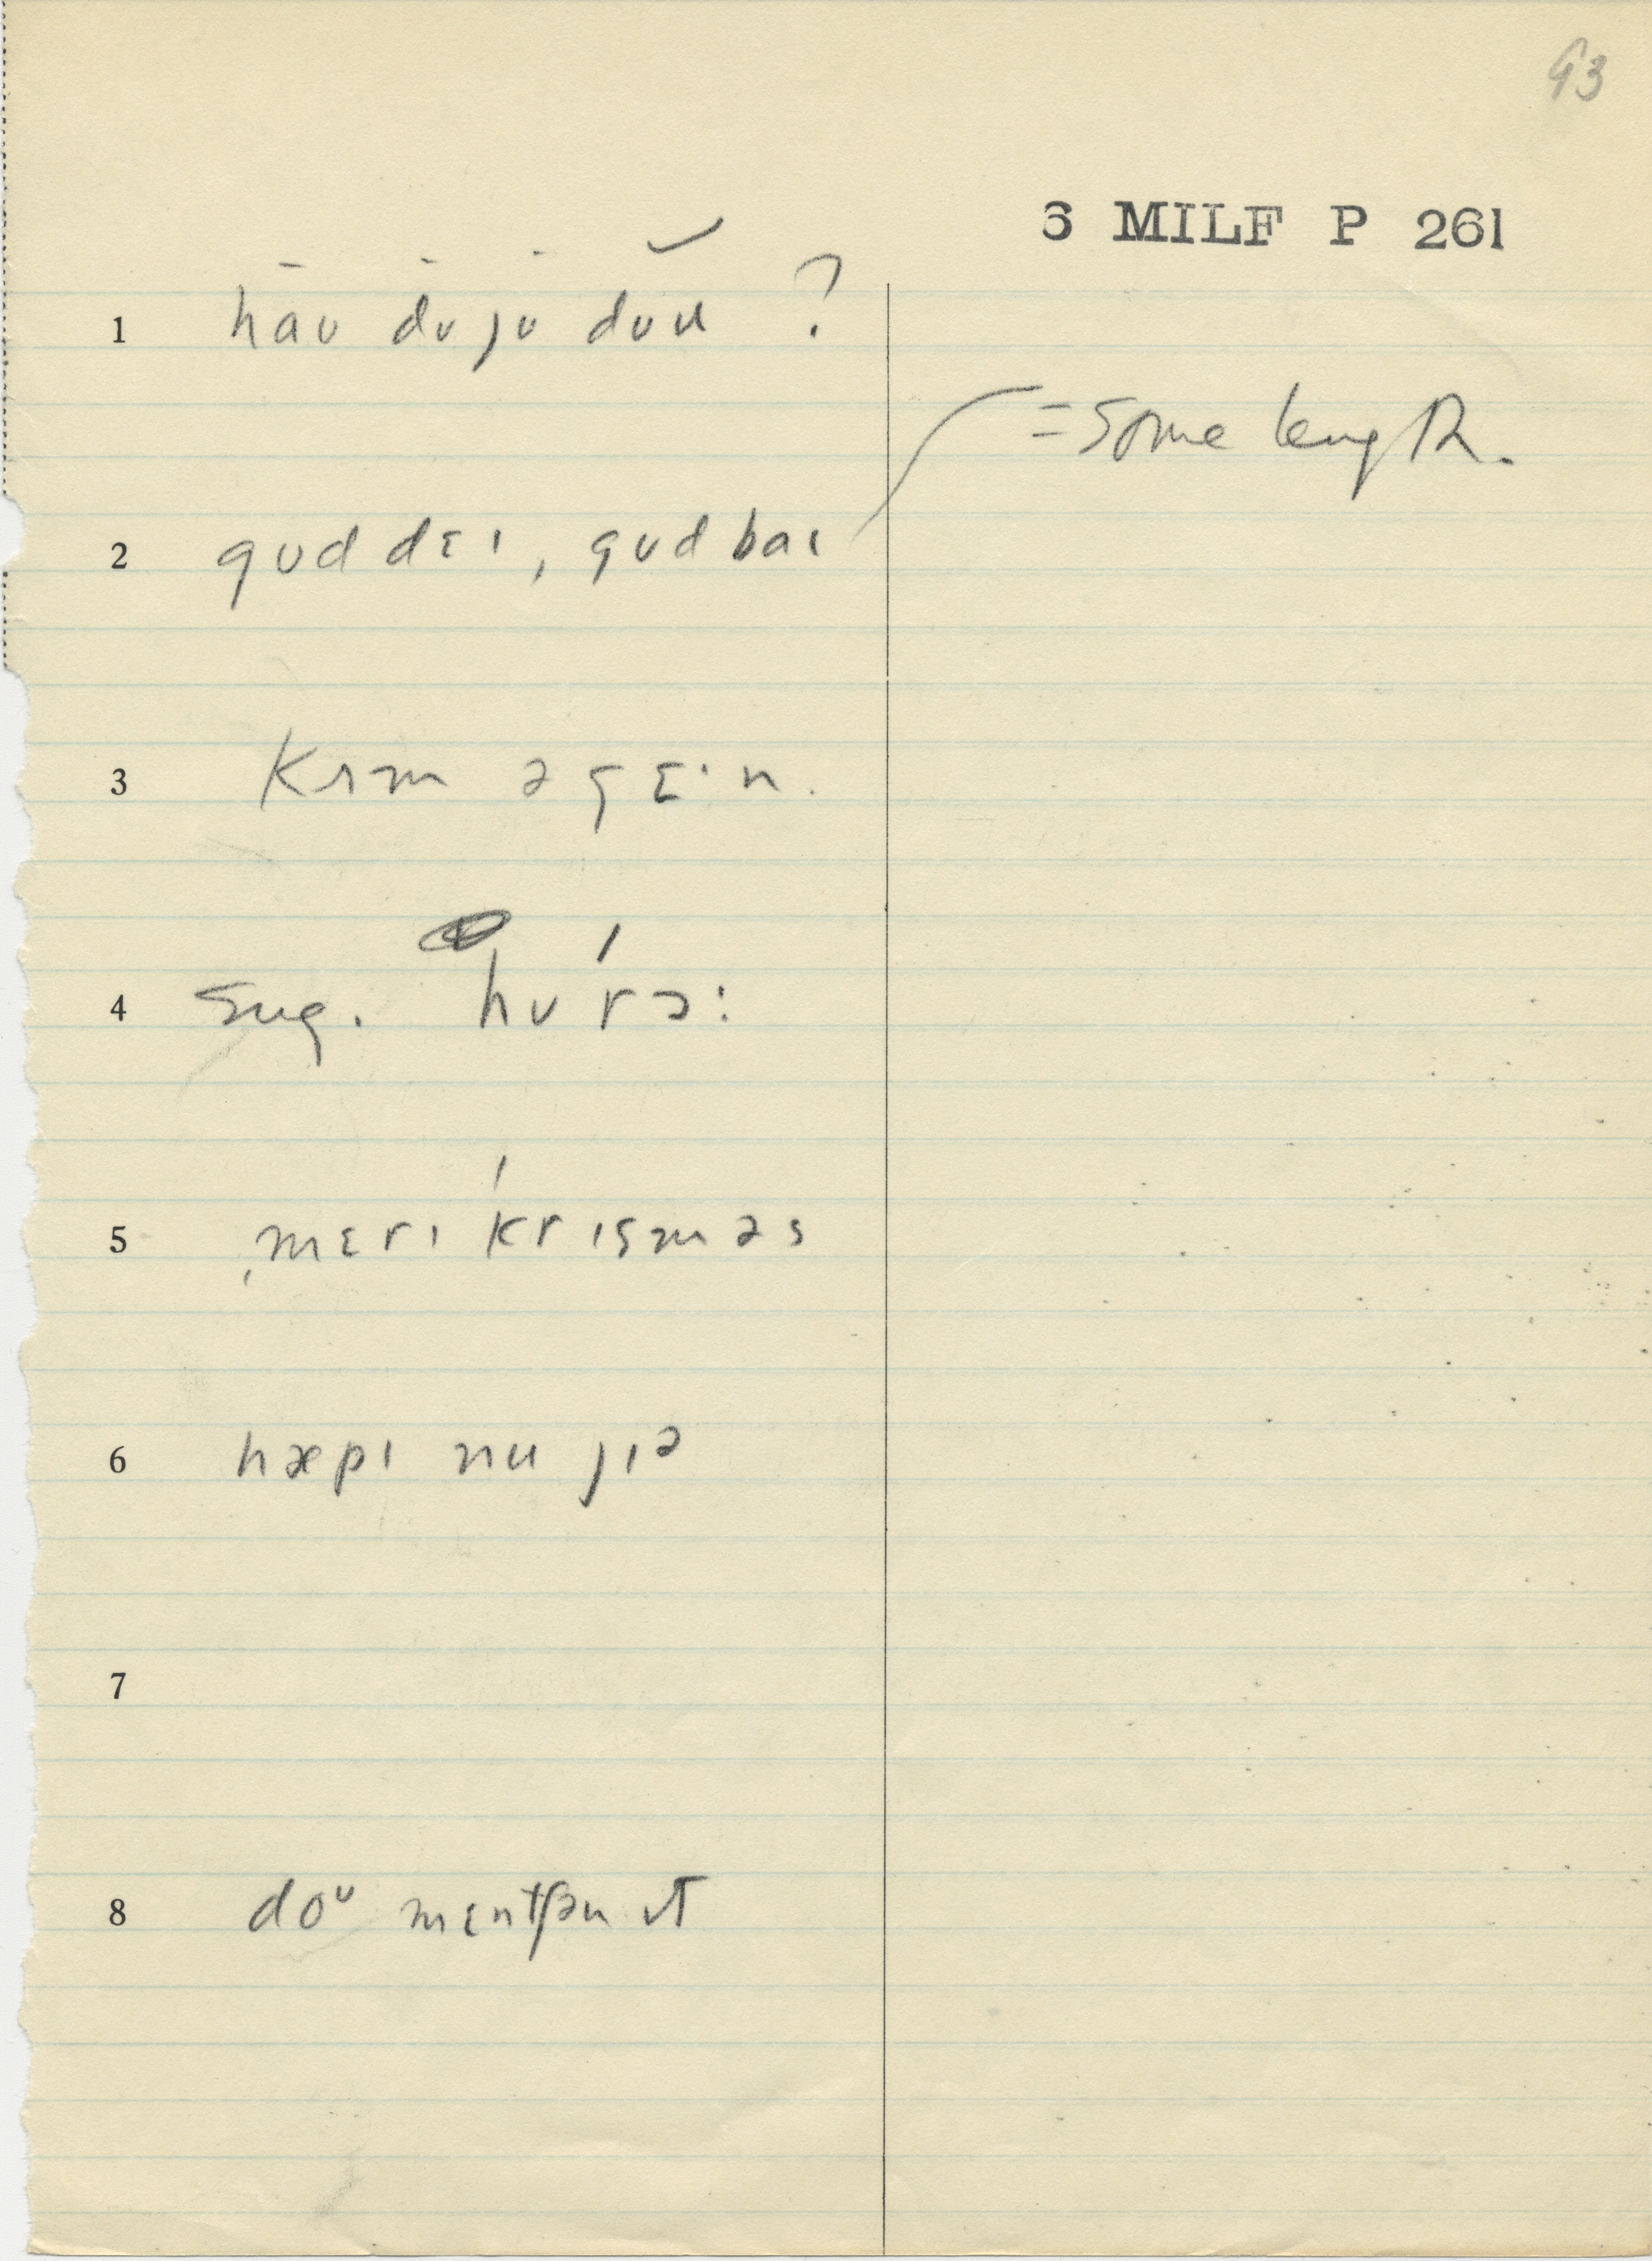 93
6 MILF P 261
1 haʊ dʊ jʊ dʊu ?
= some length.
2 gʊd dɛɩ, gʊdbaɩ
3 kʌm əgɛ·n.
4 sug. hʊ́rɔ:
5 ˌmɛrɩ ˈkrɩsməs
6 hæpɩ nu jɩə
7
8 doᶷ mɛntʃən ɩt